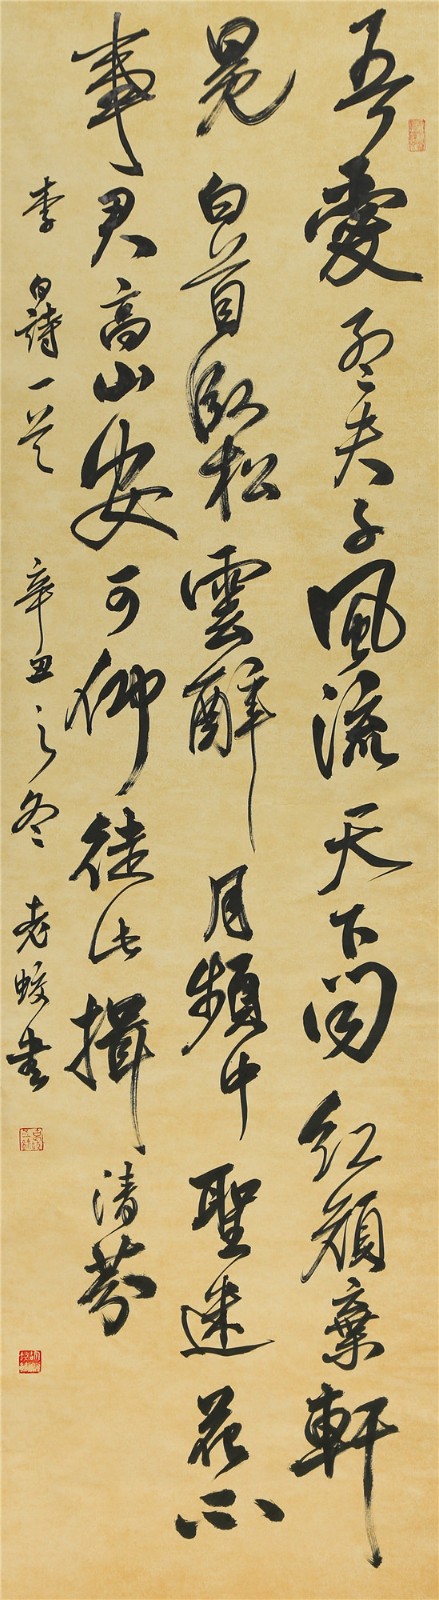 吾愛孟夫子風流天下聞紅顔棄軒
冕白首臥松雲醉月頻中聖迷花不
事君高山安可仰徒此揖清芬
李白詩一首 辛丑之冬 老蛟書